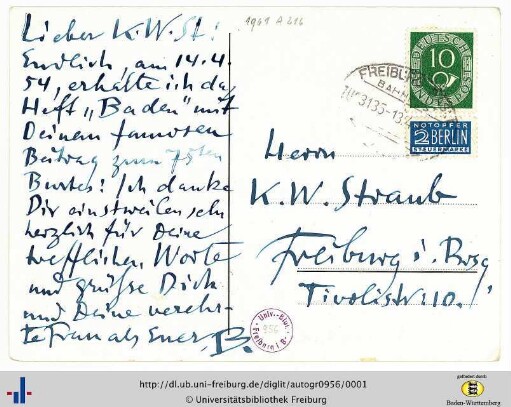 Lieber K.W.St!
Endlich, am 14.4.
54, erhalte ich das
Heft „Baden" mit
Deinem famosen
Beitrag zum 75ten
Burtes! Ich danke
Dir einstweilen sehr
herzlich für Deine
trefflichen Worte
und grüße Dich
und Deine verehr-
te Frau als Euer B.
1941 A 616
DEUTSCHE
10
BUNDESPOST
FREIBURG
BAHN
NOTOPFER
2 BERLIN
STEUERMARKE
Herrn
K.W. Straub
Freiburg i. Brsg
Tivolistr. 10.
Univ.-Bibl.
Freiburg i. B.
http://dl.ub.uni-freiburg.de/diglit/autogr0956/0001
© Universitätsbibliothek Freiburg
gefördert durch
Baden-Württemberg